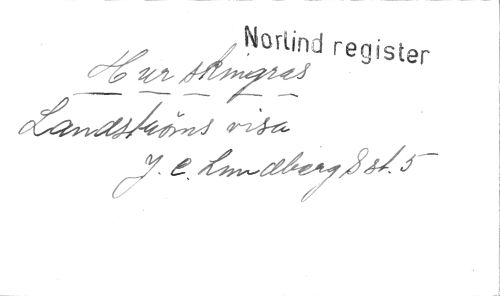 Norlind register
Hur skingras
Landströms visa
J. C. Lundberg 8 st. 5